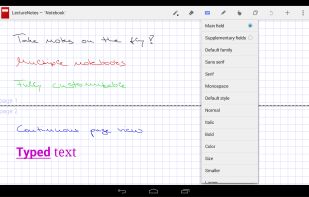 LectureNotes — Notebook
Main field
Supplementary fields
Default family
Sans serif
Serif
Monospace
Default style
Normal
Italic
Bold
Color
Size
Smaller
Larger
Take notes on the fly?
Multiple notebooks
Fully customizable
page 1
page 2
Continuous page view
Typed text